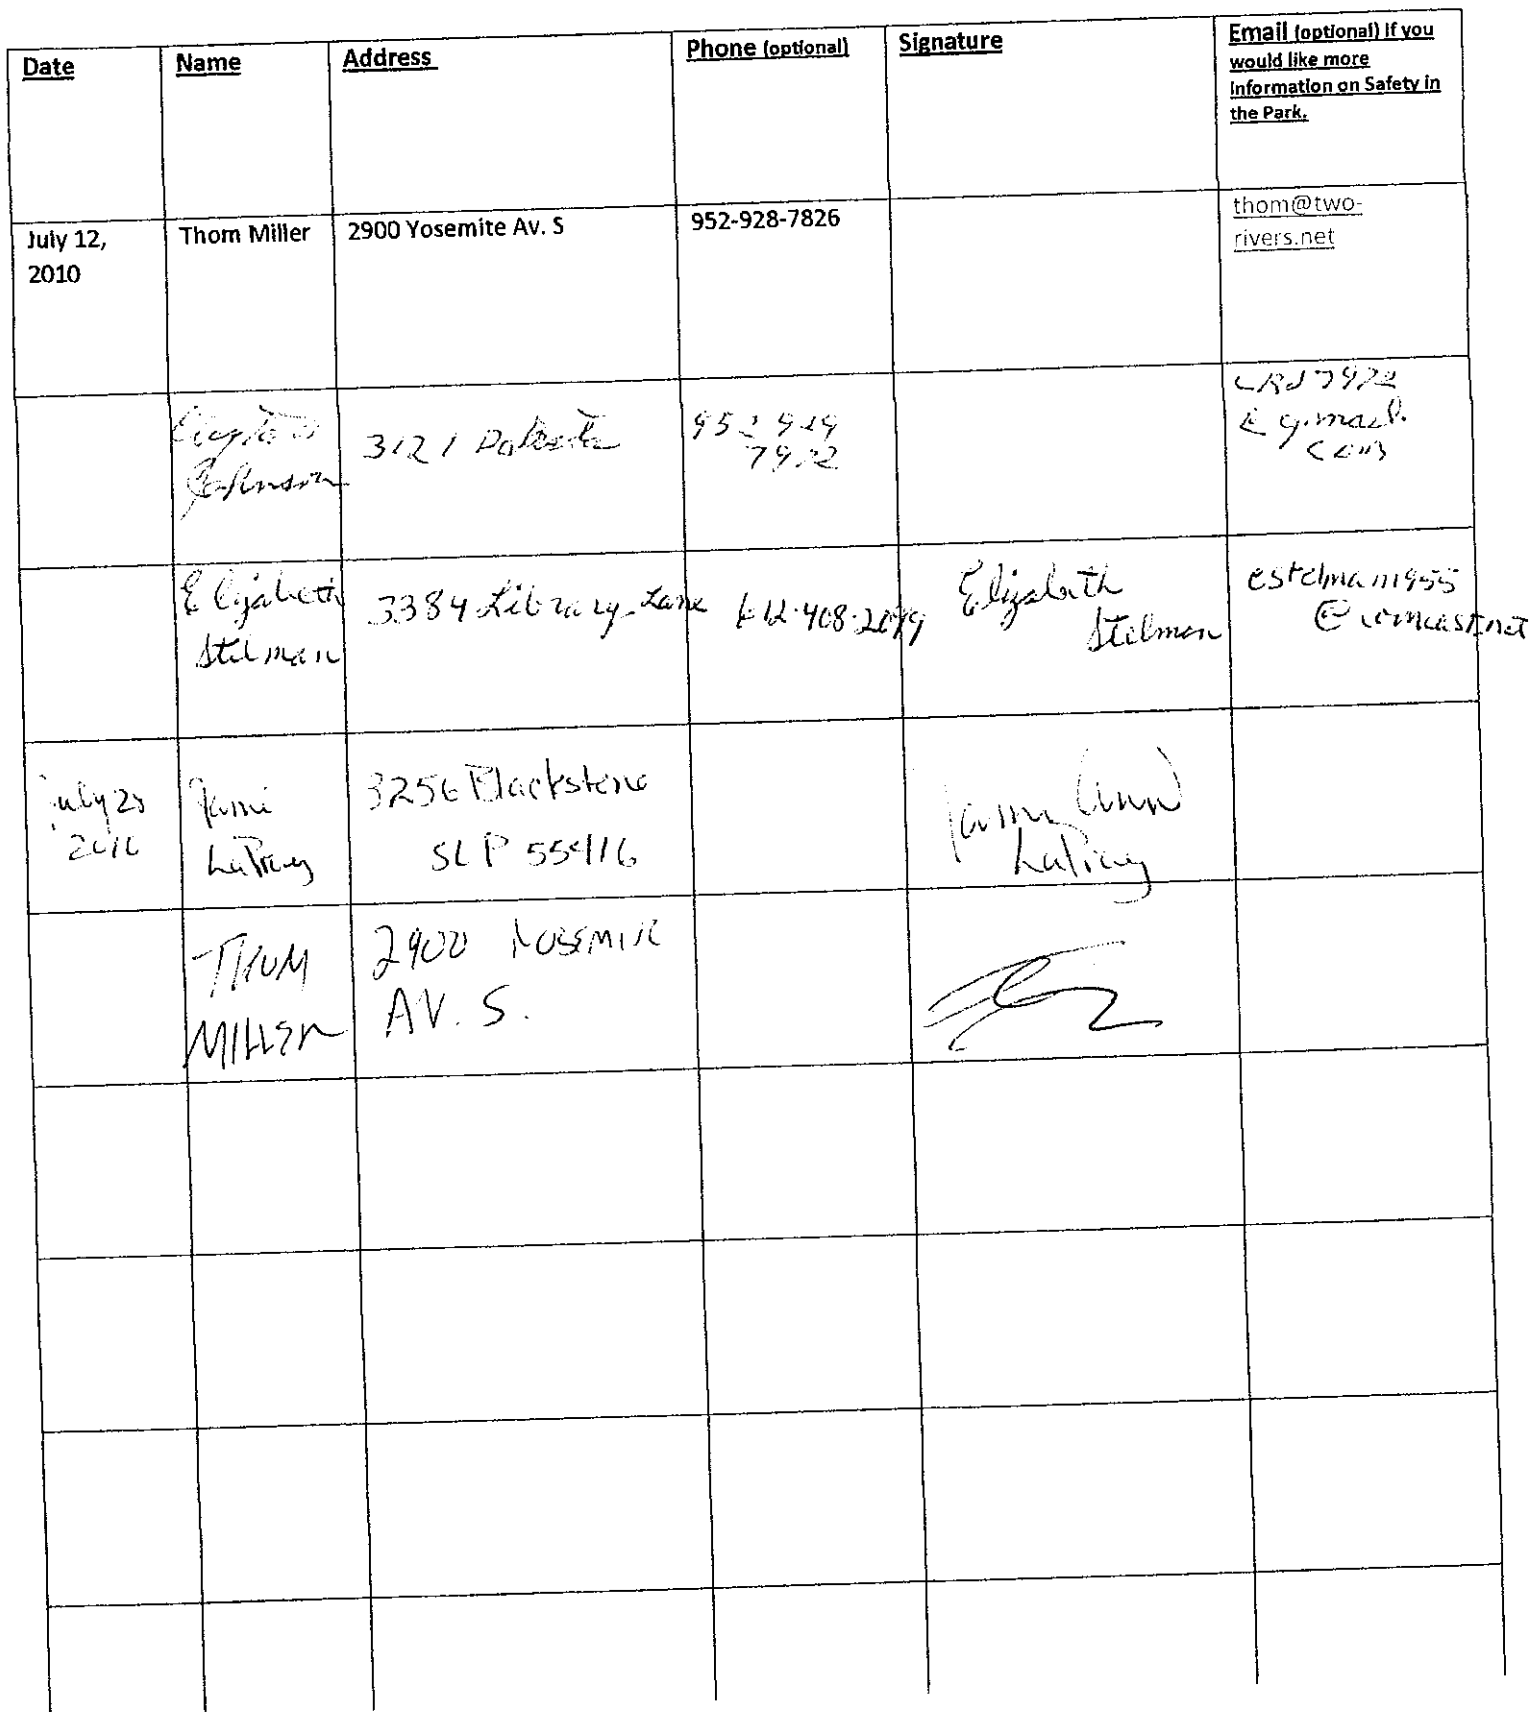 Date
Name
Address
Phone (optional)
Signature
Email (optional) If you
would like more
Information on Safety in
the Park.
July 12,
2010
Thom Miller
2900 Yosemite Av. S
952-928-7826
thom@two-
rivers.net
Johnson
3121 Dakota
952 929
7922
@ gmail.
com
Elizabeth
Stelman
3384 Library Lane
Elizabeth
Stelman
estelman1955
@comcast.net
July
3256 Blackstone
SLP 55416
Ann
THOM
MILLER
2900 YOSEMITE
AV. S.